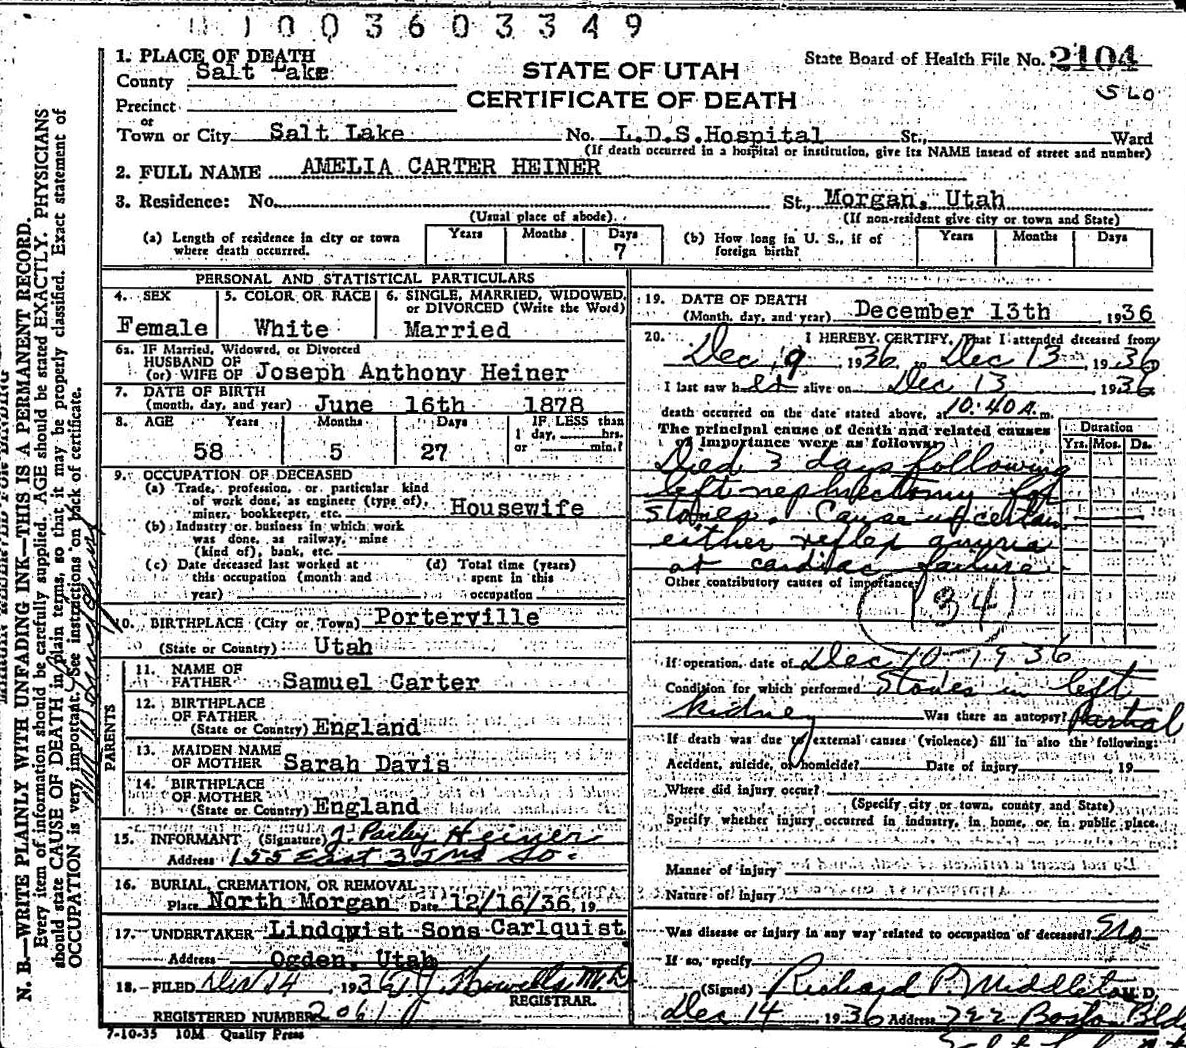 1003603349
1. PLACE OF DEATH
County Salt Lake
STATE OF UTAH
CERTIFICATE OF DEATH
State Board of Health File No. 2104
Precinct
or
Town or City Salt Lake No. L.D.S. Hospital St., Ward
(If death occurred in a hospital or institution, give its NAME instead of street and number)
2. FULL NAME AMELIA CARTER HEINER
3. Residence: No. St., Morgan, Utah
(Usual place of abode).
(If non-resident give city or town and State)
(a) Length of residence in city or town where death occurred. Years Months Days 7
(b) How long in U. S., if of foreign birth? Years Months Days
PERSONAL AND STATISTICAL PARTICULARS
4. SEX Female
5. COLOR OR RACE White
6. SINGLE, MARRIED, WIDOWED, or DIVORCED (Write the Word) Married
6a. IF Married, Widowed, or Divorced
HUSBAND OF
(or) WIFE OF Joseph Anthony Heiner
7. DATE OF BIRTH
(month, day, and year) June 16th 1878
8. AGE Years Months Days IF LESS than
1 day, hrs.
or min.?
58 5 27
9. OCCUPATION OF DECEASED
(a) Trade, profession, or particular kind
of work done, as engineer (type of),
miner, bookkeeper, etc. Housewife
(b) Industry or business in which work
was done, as railway, mine
(kind of), bank, etc.
(c) Date deceased last worked at
this occupation (month and
year)
(d) Total time (years)
spent in this
occupation
10. BIRTHPLACE (City or Town) Porterville
(State or Country) Utah
PARENTS
11. NAME OF
FATHER Samuel Carter
12. BIRTHPLACE
OF FATHER
(State or Country) England
13. MAIDEN NAME
OF MOTHER Sarah Davis
14. BIRTHPLACE
OF MOTHER
(State or Country) England
15. INFORMANT (Signature) J. Heiner
Address 155 East So.
16. BURIAL, CREMATION, OR REMOVAL
Place North Morgan Date 12/16/36, 19
17. UNDERTAKER Lindquist Sons Carlquist
Address Ogden, Utah
18. FILED 14, 1936 M.D.
REGISTRAR.
REGISTERED NUMBER 2061
7-10-35 10M Quality Press
19. DATE OF DEATH
(Month, day, and year) December 13th 1936
20. I HEREBY CERTIFY, That I attended deceased from
Dec 9 1936, to Dec 13, 1936
I last saw her alive on Dec 13 1936
death occurred on the date stated above, at 10:40 A.m.
The principal cause of death and related causes
of importance were as follows: Duration
Yrs. Mos. Ds.
Died 3 days following
left nephrectomy for
stones. Cause uncertain
either reflex anuria
or cardiac failure
Other contributory causes of importance:
134
If operation, date of Dec 10 1936
Condition for which performed Stones in left
kidney Was there an autopsy? Partial
If death was due to external causes (violence) fill in also the following:
Accident, suicide, or homicide? Date of injury , 19
Where did injury occur?
(Specify city or town, county and State)
Specify whether injury occurred in industry, in home, or in public place.
Manner of injury
Nature of injury
Was disease or injury in any way related to occupation of deceased? No
If so, specify
(Signed) Richard P. Middleton M.D.
Dec 14 1936 Address 722 Boston Bldg
N. B.—WRITE PLAINLY WITH UNFADING INK—THIS IS A PERMANENT RECORD.
Every item of information should be carefully supplied. AGE should be stated EXACTLY. PHYSICIANS
should state CAUSE OF DEATH in plain terms, so that it may be properly classified. Exact statement of
OCCUPATION is very important. See instructions on back of certificate.